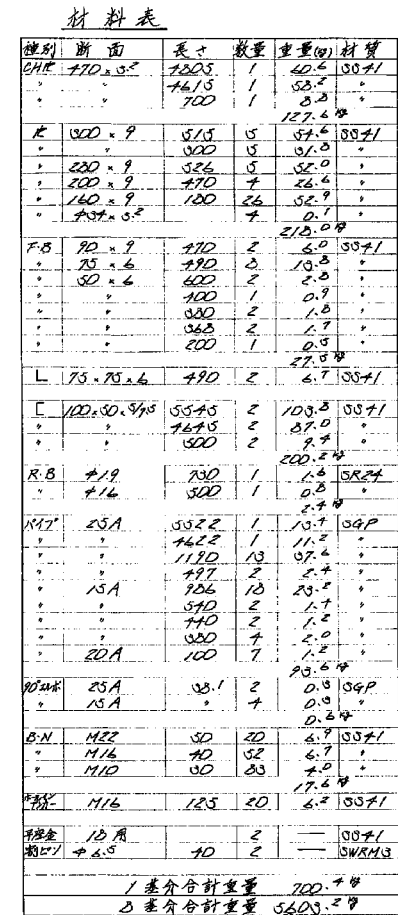 材料表
種別 断面 長さ 数量 重量(㎏) 材質
CHR 470×3.2 4805 1 60.6 SS41
〃 〃 4615 1 58.2 〃
〃 〃 700 1 8.8 〃
127.6 ㎏
300×9 515 5 54.6 SS41
〃 〃 300 5 31.8 〃
〃 230×9 526 5 〃
〃 200×9 470 4 26.6 〃
〃 160×9 180 26 52.9 〃
〃 4 0.1 〃
218.0 ㎏
F·B 90×9 470 2 6.0 SS41
〃 75×6 490 8 13.8 〃
〃 50×6 600 2 2.8 〃
〃 〃 400 1 0.9 〃
〃 〃 380 2 1.8 〃
〃 〃 368 2 1.7 〃
〃 〃 200 1 0.5 〃
27.5 ㎏
L 75×75×6 490 2 6.7 SS41
[ 100×50×5/7.5 5545 2 103.8 SS41
〃 〃 4645 2 87.0 〃
〃 〃 500 2 9.4 〃
200.2 ㎏
R·B φ19 730 1 1.6 SR24
〃 φ16 500 1 0.8 〃
2.4 ㎏
パイプ 25A 5522 1 13.4 SGP
〃 〃 4622 1 11.2 〃
〃 〃 1190 13 37.6 〃
〃 〃 497 2 2.4 〃
〃 15A 986 18 23.2 〃
〃 〃 540 2 1.4 〃
〃 〃 440 2 1.2 〃
〃 〃 380 4 2.0 〃
〃 20A 100 7 1.2 〃
93.6 ㎏
90°エルボ 25A 38.1 2 0.3 SGP
〃 15A 〃 4 0.3 〃
0.6 ㎏
B·N M22 50 20 6.9 SS41
〃 M16 40 52 6.7 〃
〃 M10 30 83 4.0 〃
17.6 ㎏
M16 125 20 6.2 SS41
平座金 18用 2 — SS41
割ピン φ6.5 40 2 — SWRM3
1基分合計重量 700.4 ㎏
8基分合計重量 5603.2 ㎏